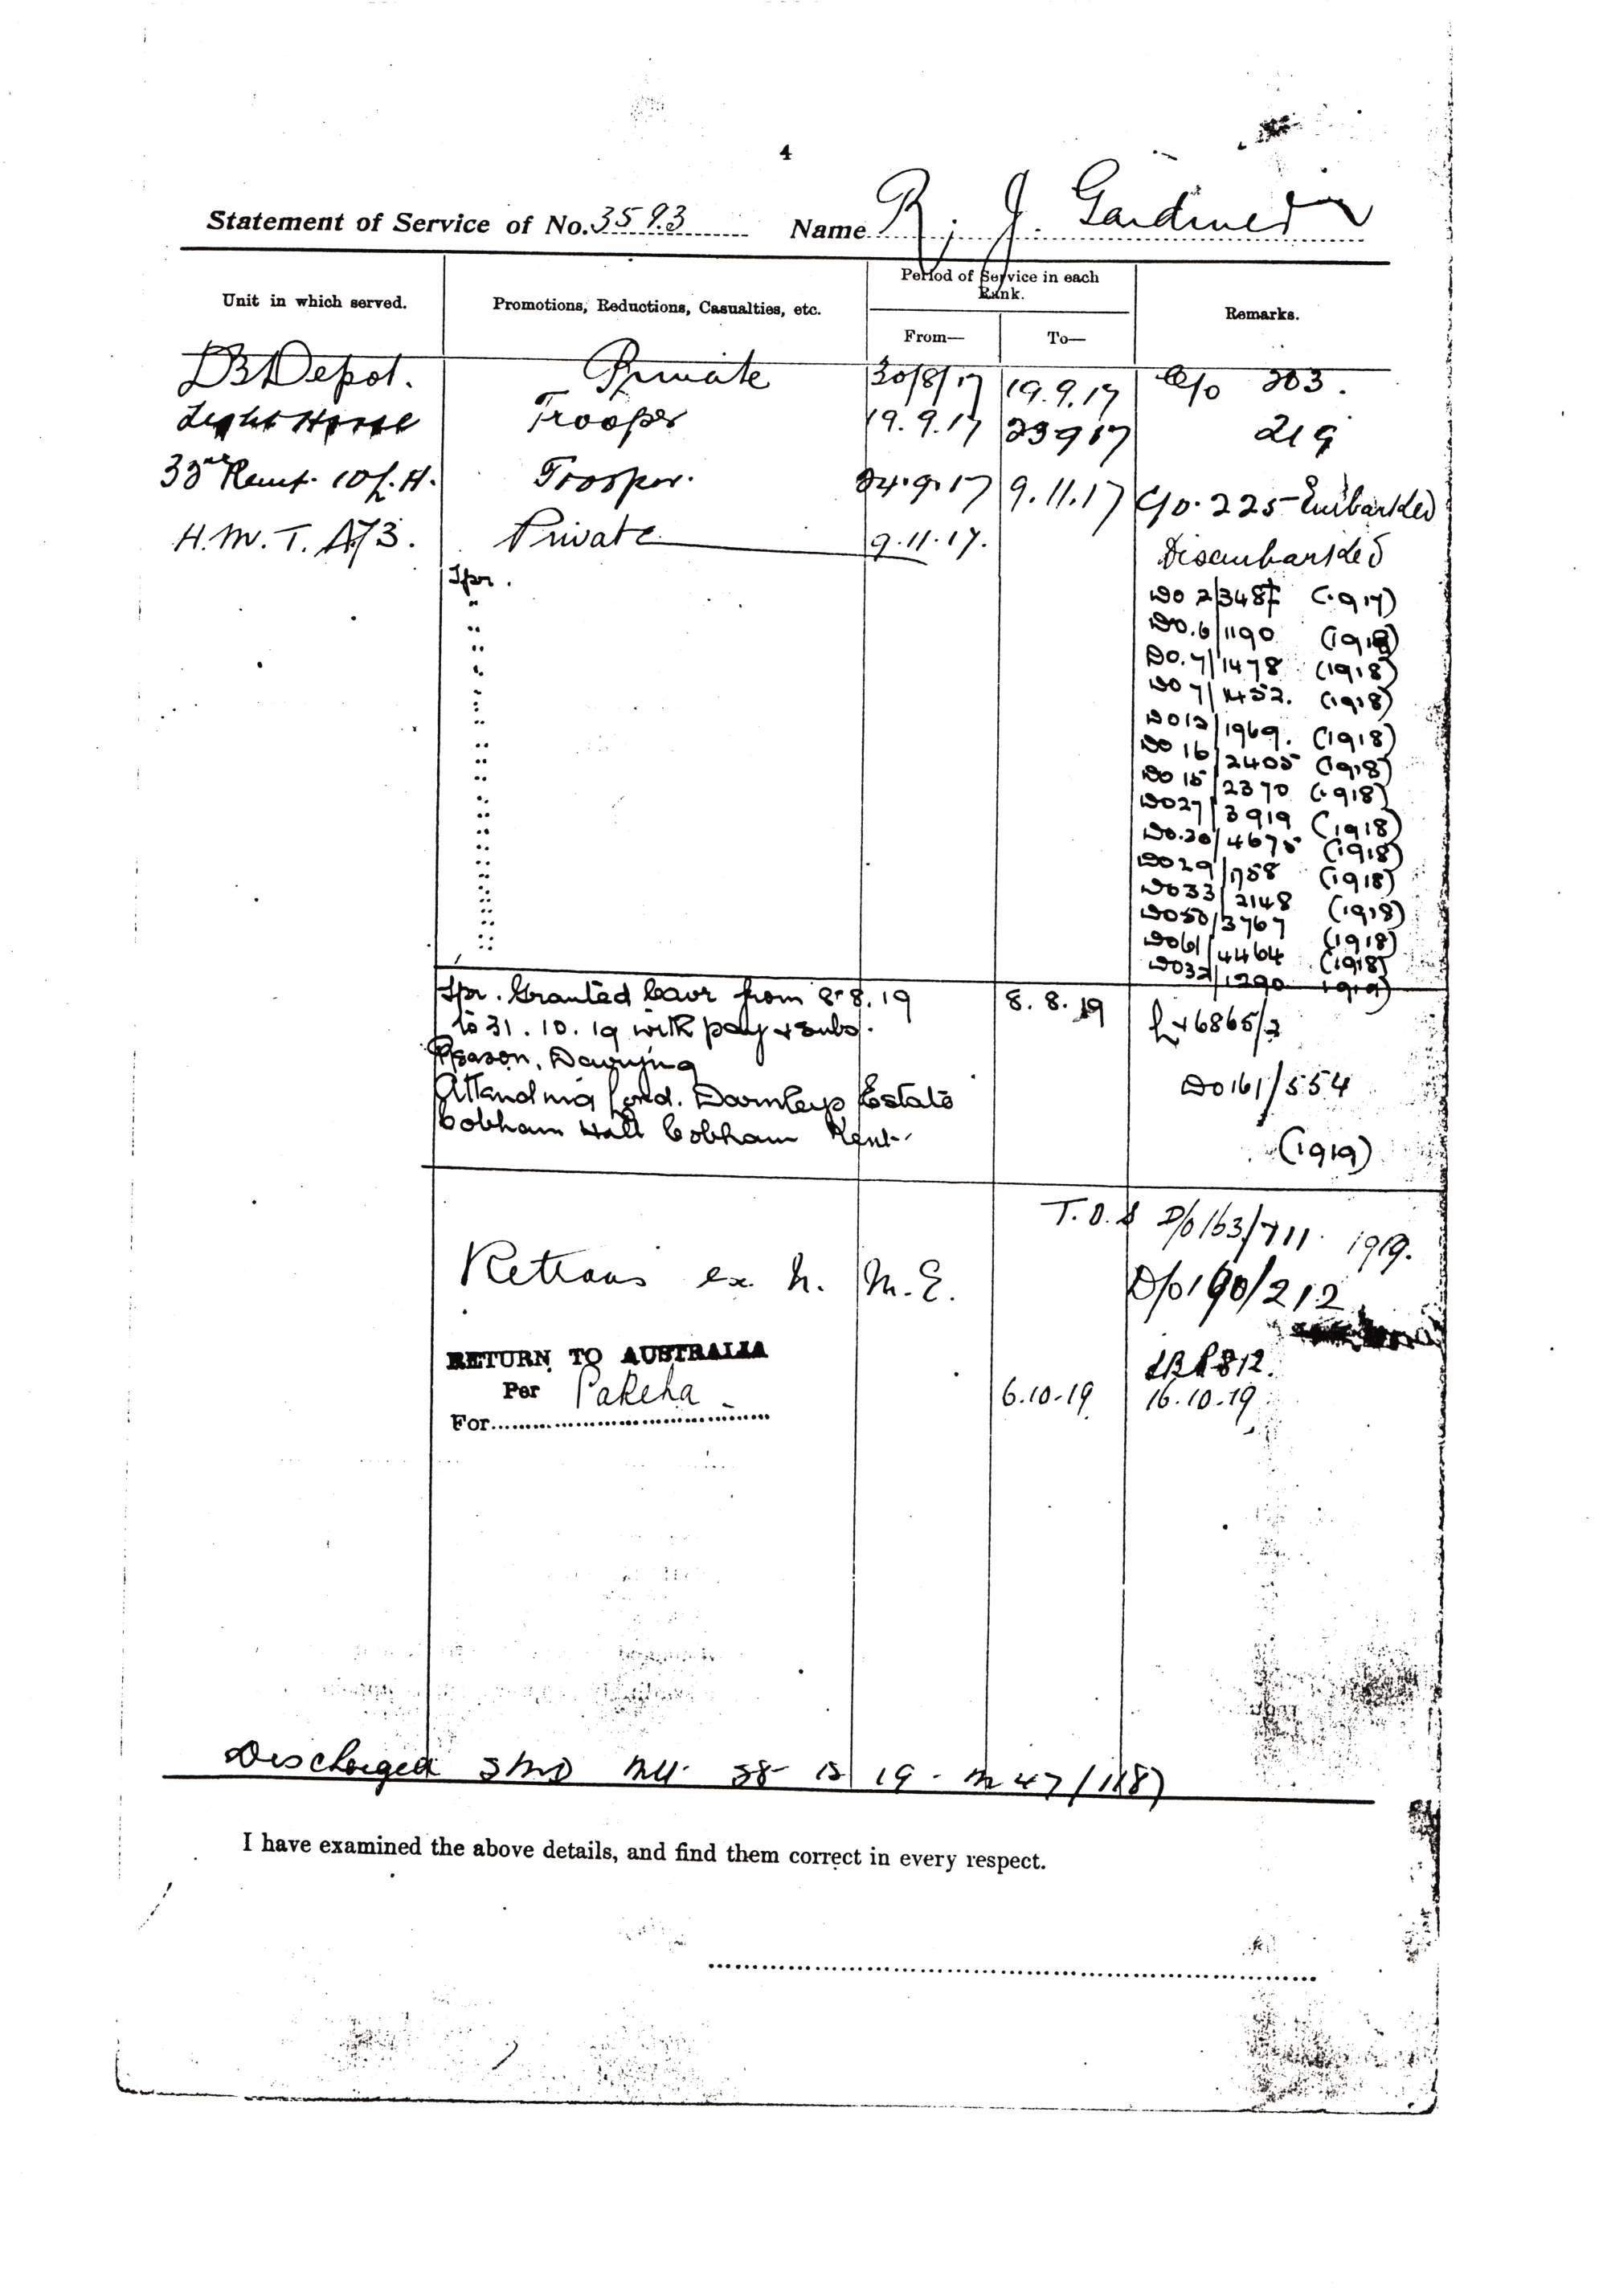 4
Statement of Service of No. 3593 Name R. J. Gardiner
Unit in which served. Promotions, Reductions, Casualties, etc. Period of Service in each Rank. Remarks.
From— To—
Depot. Private 30/8/17 19.9.17 203.
Light Horse Trooper 19.9.17 23 9 17 219
Reinf. 10 L.H. Trooper. 24.9.17 9.11.17 225 Embarked
H.M.T. A73. Private 9.11.17.
Disembarked
Tpr. DO 2/3487 (1917)
" DO.6/1190 (1918)
" DO.7/1478 (1918)
" DO 7/1452. (1918)
" DO 12/1969. (1918)
" DO 16/2405 (1918)
" DO 15/2370 (1918)
" DO27/3919 (1918)
" DO.20/4675 (1918)
" DO29/1758 (1918)
" DO33/2148 (1918)
" DO50/3767 (1918)
" DO61/4464 (1918)
" DO32/1290 (1919)
Tpr. Granted leave from 8.8.19 8.8.19
to 31.10.19 with pay & subs.
Reason, Dairying
Attending Lord. Darnleys Estate DO161/554
Cobham Hall Cobham Kent. (1919)
T.O.S D/o163/711. 1919.
Retrans ex N. M.E. D/o190/212
RETURN TO AUSTRALIA
Per Pakeha 6.10.19 16.10.19
For
Discharged 19
I have examined the above details, and find them correct in every respect.